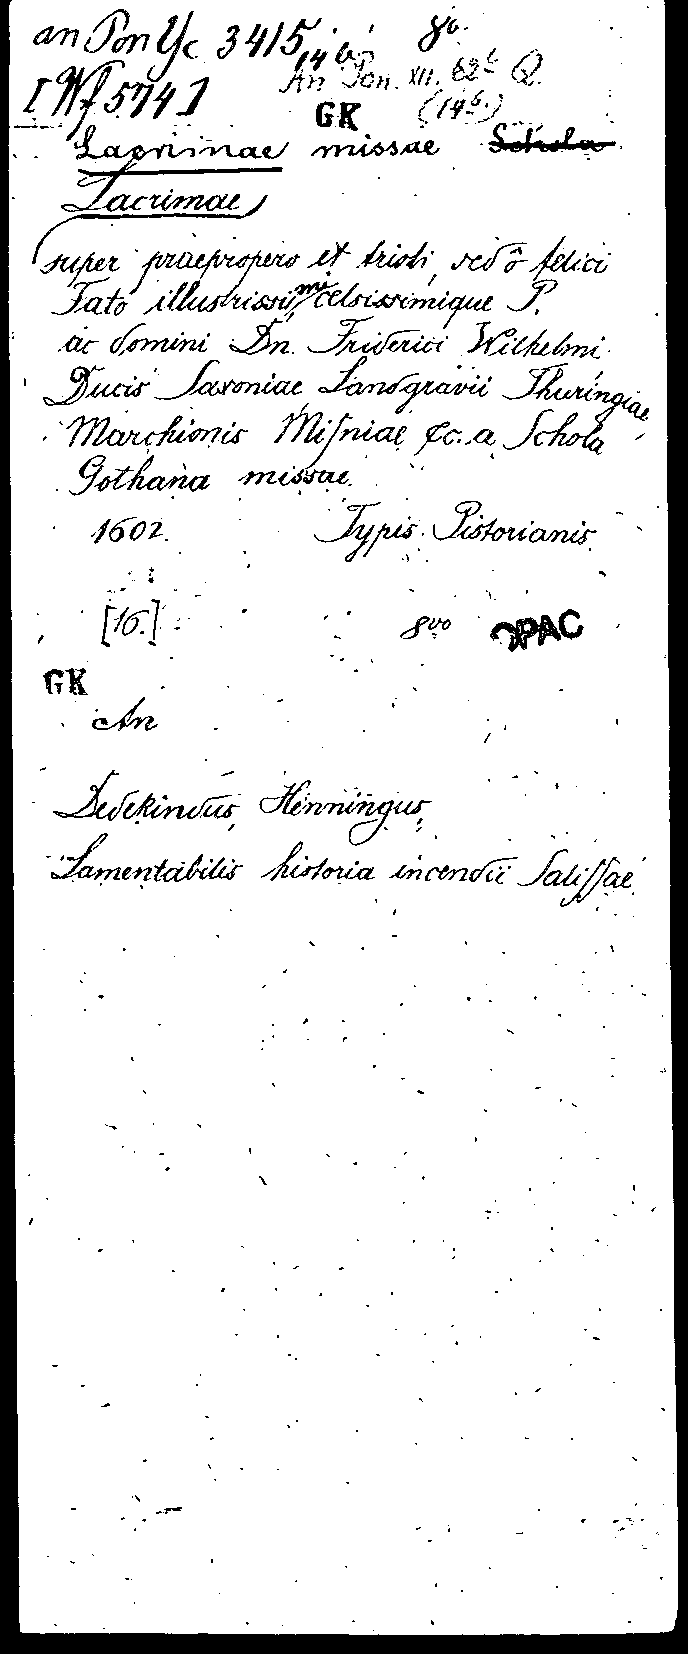 an Pon Yc 3415, 14 b. 8o.
[Wf 574] An Pon. XII. 62b Q.
GK (14b.)
Lacrimae missae Schola
Lacrimae
super praepropero et tristi, sed ô felici
Fato illustrissimi celsissimique P.
ac domini Dn. Friderici Wilhelmi
Ducis Saxoniae Landgravii Thuringiae,
Marchionis Misniae &c. a Schola
Gothana missae.
1602. Typis Pistorianis.
[16.] 8vo OPAC
GK
An
Dedekindus, Henningus,
Lamentabilis historia incendii Salissae.